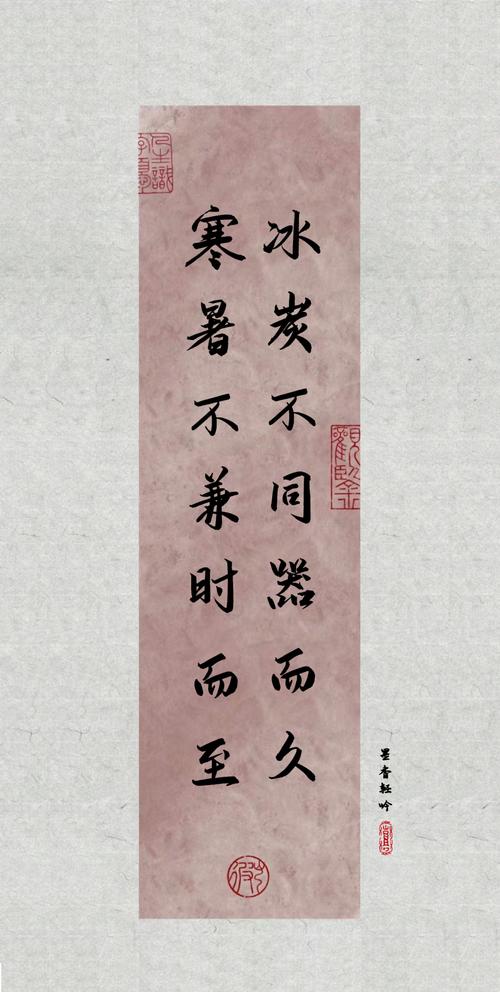 冰炭不同器而久
寒暑不兼时而至
墨香轻吟